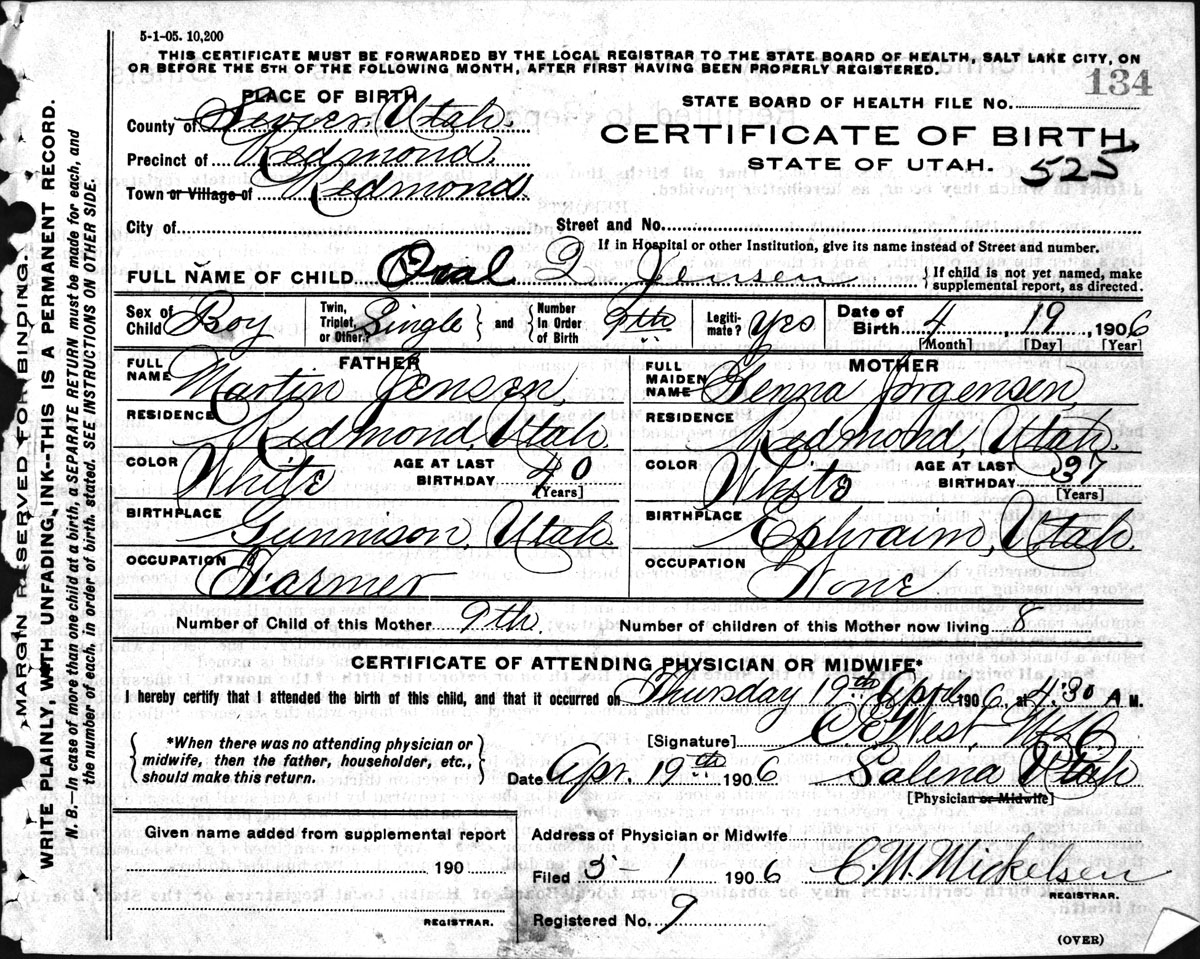 5-1-05. 10,200
THIS CERTIFICATE MUST BE FORWARDED BY THE LOCAL REGISTRAR TO THE STATE BOARD OF HEALTH, SALT LAKE CITY, ON
OR BEFORE THE 5TH OF THE FOLLOWING MONTH, AFTER FIRST HAVING BEEN PROPERLY REGISTERED.
134
PLACE OF BIRTH
STATE BOARD OF HEALTH FILE NO.
County of Sevier. Utah.
CERTIFICATE OF BIRTH
Precinct of Redmond.
STATE OF UTAH.
525
Town or Village of Redmond.
City of
Street and No.
If in Hospital or other Institution, give its name instead of Street and number.
FULL NAME OF CHILD Oral Jensen
{ If child is not yet named, make
supplemental report, as directed.
Sex of Child Boy
Twin, Triplet, or Other? Single } and { Number In Order of Birth 9th
Legitimate? Yes
Date of Birth 4, 19, 1906
[Month] [Day] [Year]
FATHER
MOTHER
FULL NAME Martin Jensen,
FULL MAIDEN NAME Jorgensen,
RESIDENCE Redmond, Utah.
RESIDENCE Redmond, Utah.
COLOR White AGE AT LAST BIRTHDAY 40 [Years]
COLOR White AGE AT LAST BIRTHDAY [Years]
BIRTHPLACE Gunnison, Utah.
BIRTHPLACE Ephraim, Utah.
OCCUPATION Farmer
OCCUPATION None
Number of Child of this Mother 9th. Number of children of this Mother now living 8
CERTIFICATE OF ATTENDING PHYSICIAN OR MIDWIFE*
I hereby certify that I attended the birth of this child, and that it occurred on Thursday 19th April 1906, at 4:30 A M.
[Signature] West,
{ *When there was no attending physician or
midwife, then the father, householder, etc.,
should make this return. }
Date Apr. 19th 1906 Salina Utah
[Physician or Midwife]
Given name added from supplemental report
190
REGISTRAR.
Address of Physician or Midwife
Filed 5-1 1906 C.M. Mickelsen
REGISTRAR.
Registered No. 9
(OVER)
MARGIN RESERVED FOR BINDING.
WRITE PLAINLY, WITH UNFADING INK--THIS IS A PERMANENT RECORD.
N. B.--In case of more than one child at a birth, a SEPARATE RETURN must be made for each, and
the number of each, in order of birth, stated. SEE INSTRUCTIONS ON OTHER SIDE.